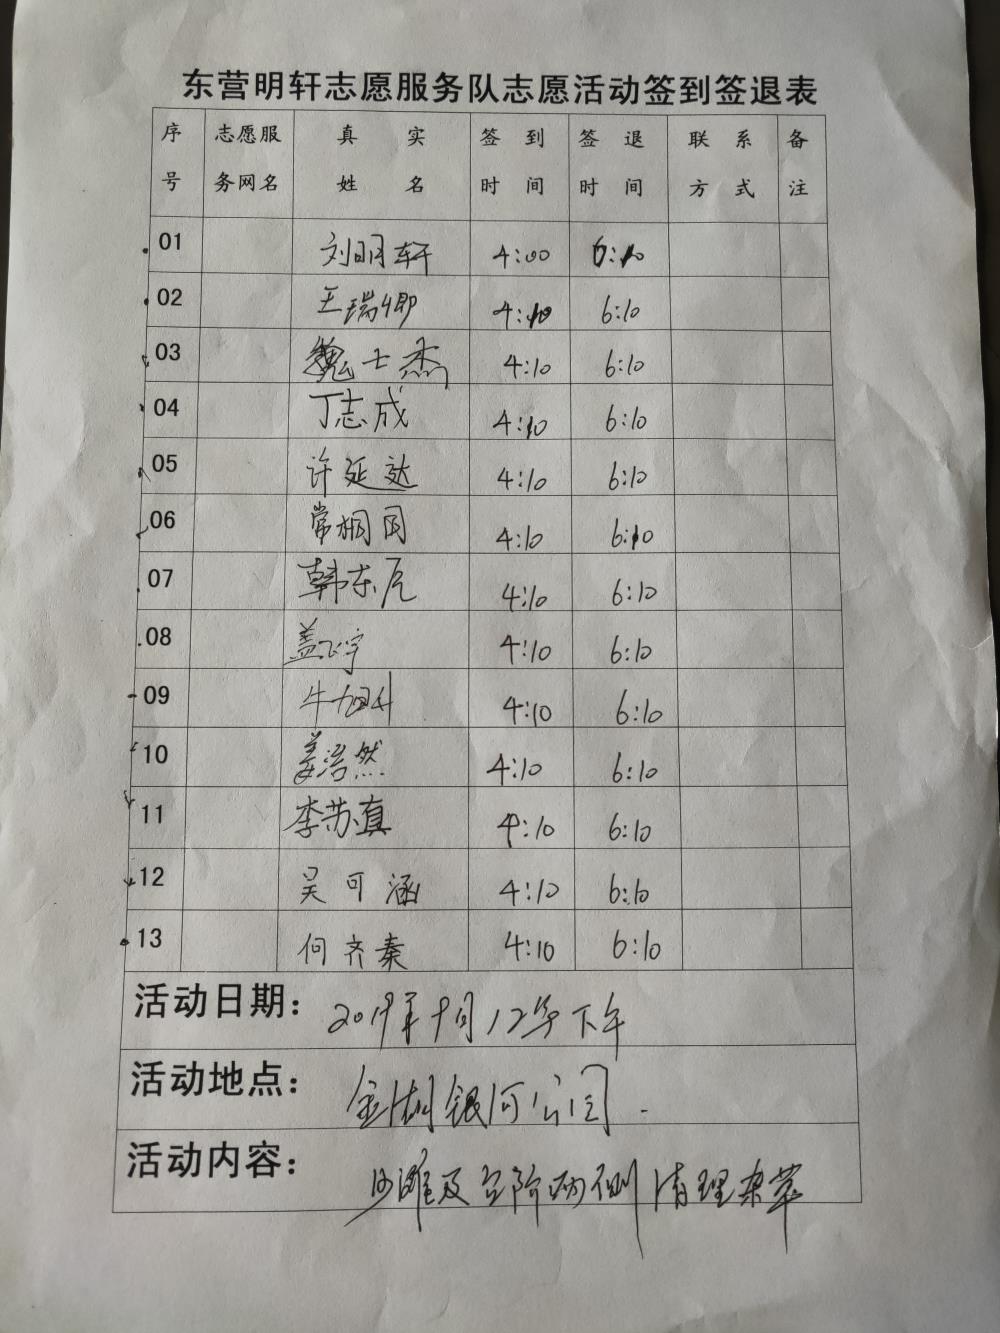 东营明轩志愿服务队志愿活动签到签退表
序号 志愿服务网名 真实姓名 签到时间 签退时间 联系方式 备注
01 刘明轩 4:00 6:10
02 王瑞卿 4:10 6:10
03 魏士杰 4:10 6:10
04 丁志成 4:10 6:10
05 许延达 4:10 6:10
06 常桐国 4:10 6:10
07 韩东辰 4:10 6:10
08 盖飞宇 4:10 6:10
09 牛旭升 4:10 6:10
10 姜浩然 4:10 6:10
11 李苏真 4:10 6:10
12 吴可涵 4:10 6:10
13 何齐秦 4:10 6:10
活动日期: 2019年9月12 下午
活动地点: 金湖银河公园.
活动内容: 沙滩及台阶两侧清理杂草